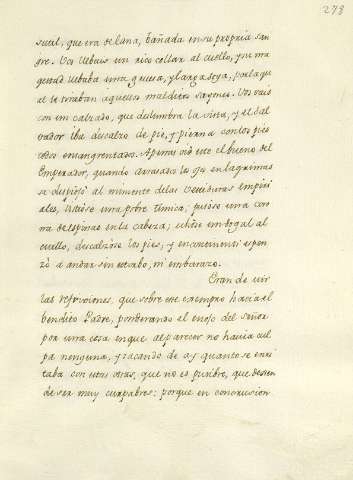 278
sutil, que era de lana, bañada en su propria san
gre. Vos llebais un rico collar al cuello, y su ma
gestad llebaba una gruesa, y larga soga, por la qu
al le tiraban aquellos malditos sayones. Vos vais
con un calzado, que deslumbra la vista, y el Sal
vador iba descalzo de pie, y pierna con los pies
todos ensangrentados. Apenas oió esto el bueno del
Emperador, quando arrasados los ojos en lagrimas
se despojó al momento de las vestiduras imperi
ales, vistióse una pobre túnica; púsose una coro
na de espinas en la cabeza; echóse un dogal al
cuello, descalzóse los pies, y encontinenti empe
zó a andar sin estorbo, ni embarazo.
Eran de oir
las reflexiones, que sobre este exemplo hacia el
bendito Padre, ponderando el enojo del Señor
por una cosa en que al parecer no havia cul
pa ninguna, y sacando de ay quanto se irri
taba con otras otras, que no es posible, que dexen
de ser muy culpables: porque en conclusion